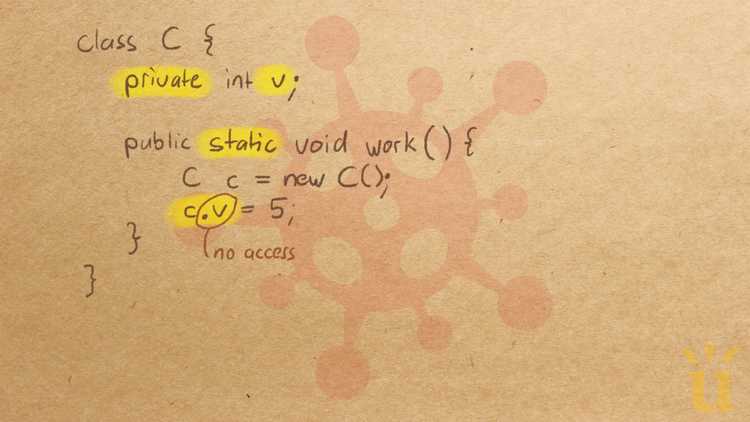 class C {
private int v;
public static void work() {
C c = new C();
c.v = 5;
}
no access
}